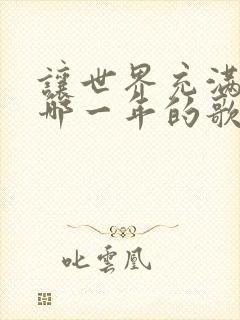 讓世界充滿
那一年的歌
叱雲鳳